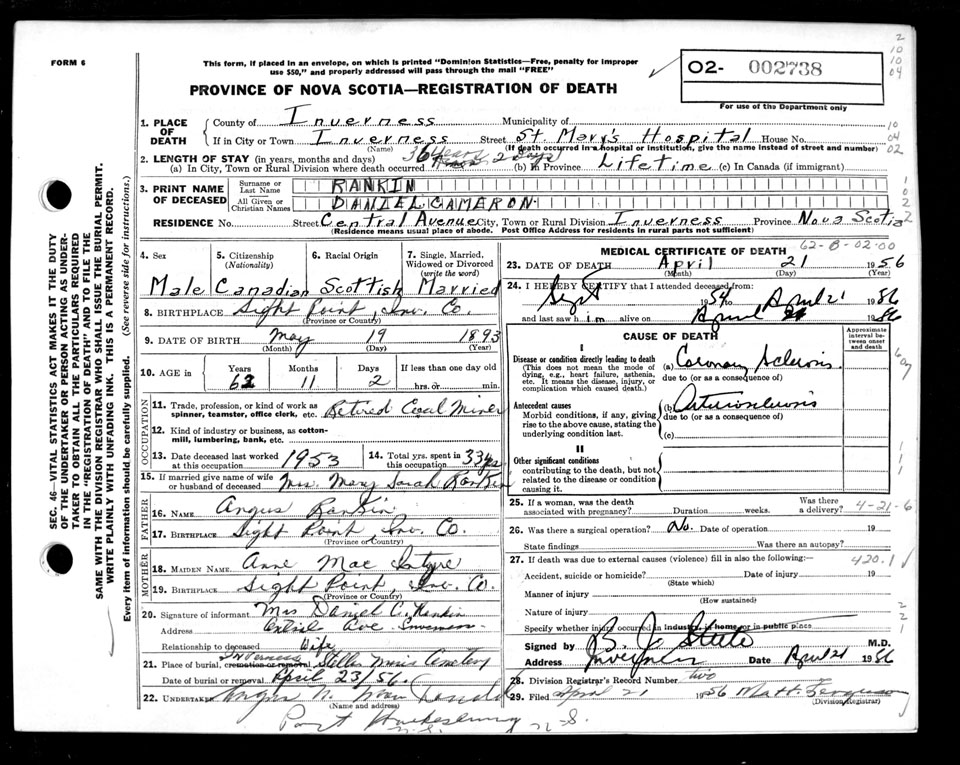 FORM 6
This form, if placed in an envelope, on which is printed "Dominion Statistics—Free, penalty for improper
use $50," and properly addressed will pass through the mail "FREE"
PROVINCE OF NOVA SCOTIA—REGISTRATION OF DEATH
O2- 002738
For use of the Department only
2
10
10
04
SEC. 46—VITAL STATISTICS ACT MAKES IT THE DUTY
OF THE UNDERTAKER OR PERSON ACTING AS UNDER-
TAKER TO OBTAIN ALL THE PARTICULARS REQUIRED
IN THE "REGISTRATION OF DEATH" AND TO FILE THE
SAME WITH THE DIVISION REGISTRAR WHO SHALL ISSUE THE BURIAL PERMIT.
WRITE PLAINLY WITH UNFADING INK. THIS IS A PERMANENT RECORD.
Every item of information should be carefully supplied. (See reverse side for instructions.)
1. PLACE OF DEATH County of Inverness Municipality of
If in City or Town Inverness Street St Mary's Hospital House No.
(Name) (If death occurred in a hospital or institution, give the name instead of street and number)
10
04
02
2. LENGTH OF STAY (in years, months and days)
(a) In City, Town or Rural Division where death occurred 36 years 2 days (b) in Province Lifetime (c) In Canada (if immigrant)
3. PRINT NAME OF DECEASED Surname or Last Name RANKIN
All Given or Christian Names DANIEL CAMERON
RESIDENCE No. Street Central Avenue City, Town or Rural Division Inverness Province Nova Scotia
(Residence means usual place of abode. Post Office Address for residents in rural parts not sufficient)
4. Sex 5. Citizenship (Nationality) 6. Racial Origin 7. Single, Married, Widowed or Divorced (write the word)
Male Canadian Scottish Married
8. BIRTHPLACE Sight Point, Inv. Co.
(Province or Country)
9. DATE OF BIRTH May 19 1893
(Month) (Day) (Year)
10. AGE in Years Months Days If less than one day old
62 11 2 hrs. or min.
OCCUPATION
11. Trade, profession, or kind of work as spinner, teamster, office clerk, etc. Retired Coal Miner
12. Kind of industry or business, as cotton-mill, lumbering, bank, etc.
13. Date deceased last worked at this occupation 1953
14. Total yrs. spent in this occupation 33 yrs
15. If married give name of wife or husband of deceased Mrs. Mary Sarah Rankin
FATHER
16. NAME Angus Rankin
17. BIRTHPLACE Sight Point, Inv. Co.
(Province or Country)
MOTHER
18. MAIDEN NAME Anne Mac Intyre
19. BIRTHPLACE Sight Point, Inv. Co.
(Province or Country)
20. Signature of informant Mrs Daniel C. Rankin
Address Central Ave Inverness
Relationship to deceased Wife
21. Place of burial, cremation or removal Inverness Stella Maris Cemetery
Date of burial or removal April 23/56.
22. Undertaker Angus
(Name and address)
Port Hawkesbury N.S.
N.S.
MEDICAL CERTIFICATE OF DEATH 62-B-02-00
23. DATE OF DEATH April 21 1956
(Month) (Day) (Year)
24. I HEREBY CERTIFY that I attended deceased from:
Sept 1954 to April 21 1956
and last saw him alive on April 21 1956
CAUSE OF DEATH
Approximate interval between onset and death
I
Disease or condition directly leading to death
(This does not mean the mode of dying, e.g., heart failure, asthenia, etc. It means the disease, injury, or complication which caused death.)
(a) Coronary Sclerosis
due to (or as a consequence of)
Antecedent causes
Morbid conditions, if any, giving rise to the above cause, stating the underlying condition last.
(b) Arteriosclerosis
due to (or as a consequence of)
(c)
II
Other significant conditions
contributing to the death, but not related to the disease or condition causing it.
25. If a woman, was the death associated with pregnancy? Duration weeks. Was there a delivery?
4-21-6
26. Was there a surgical operation? No. Date of operation 19
State findings Was there an autopsy?
27. If death was due to external causes (violence) fill in also the following:
420.1
Accident, suicide or homicide? Date of injury 19
(State which)
Manner of injury
(How sustained)
Nature of injury
Specify whether injury occurred in industry, in home or in public place
Signed by B. J. Steele M.D.
Address Inverness Date April 21 1956
28. Division Registrar's Record Number two
29. Filed April 21 1956 Matt. Ferguson
(Division Registrar)